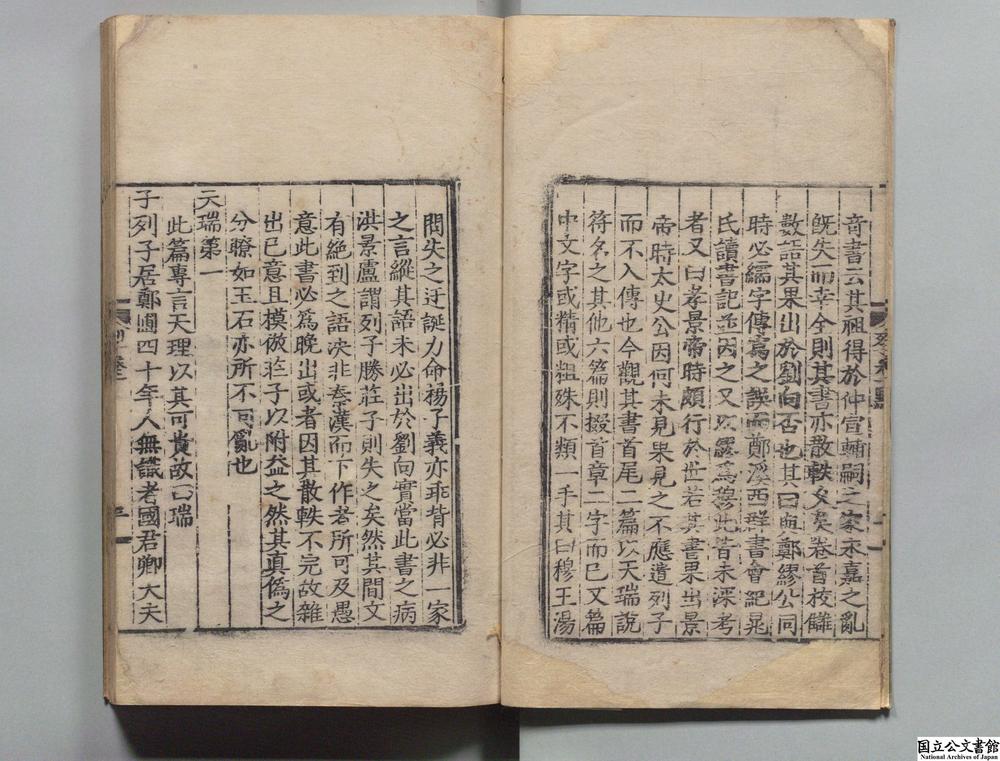 奇書云其祖得於仲宣輔嗣之家永嘉之亂
旣失而幸全則其書亦散軼久矣卷首校讎
數語其果出於劉向否也其曰與鄭繆公同
時必繻字傳寫之誤而鄭溪西群書會紀晁
氏讀書記並因之又以繆爲穆此皆未深考
者又曰孝景帝時頗行於世若其書果出景
帝時太史公因何未見果見之不應遺列子
而不入傳也今觀其書首尾二篇以天瑞說
符名之其他六篇則掇首章二字而已又篇
中文字或精或粗殊不類一手其曰穆王湯
問失之迂誕力命楊子義亦乖背必非一家
之言縱其語未必出於劉向實當此書之病
洪景盧謂列子勝莊子則失之矣然其間文
有絶到之語決非秦漢而下作者所可及愚
意此書必爲晚出或者因其散軼不完故雜
出己意且模倣莊子以附益之然其眞僞之
分瞭如玉石亦所不可亂也
天瑞第一
此篇專言天理以其可貴故曰瑞
子列子居鄭圃四十年人無識者國君卿大夫
国立公文書館
National Archives of Japan